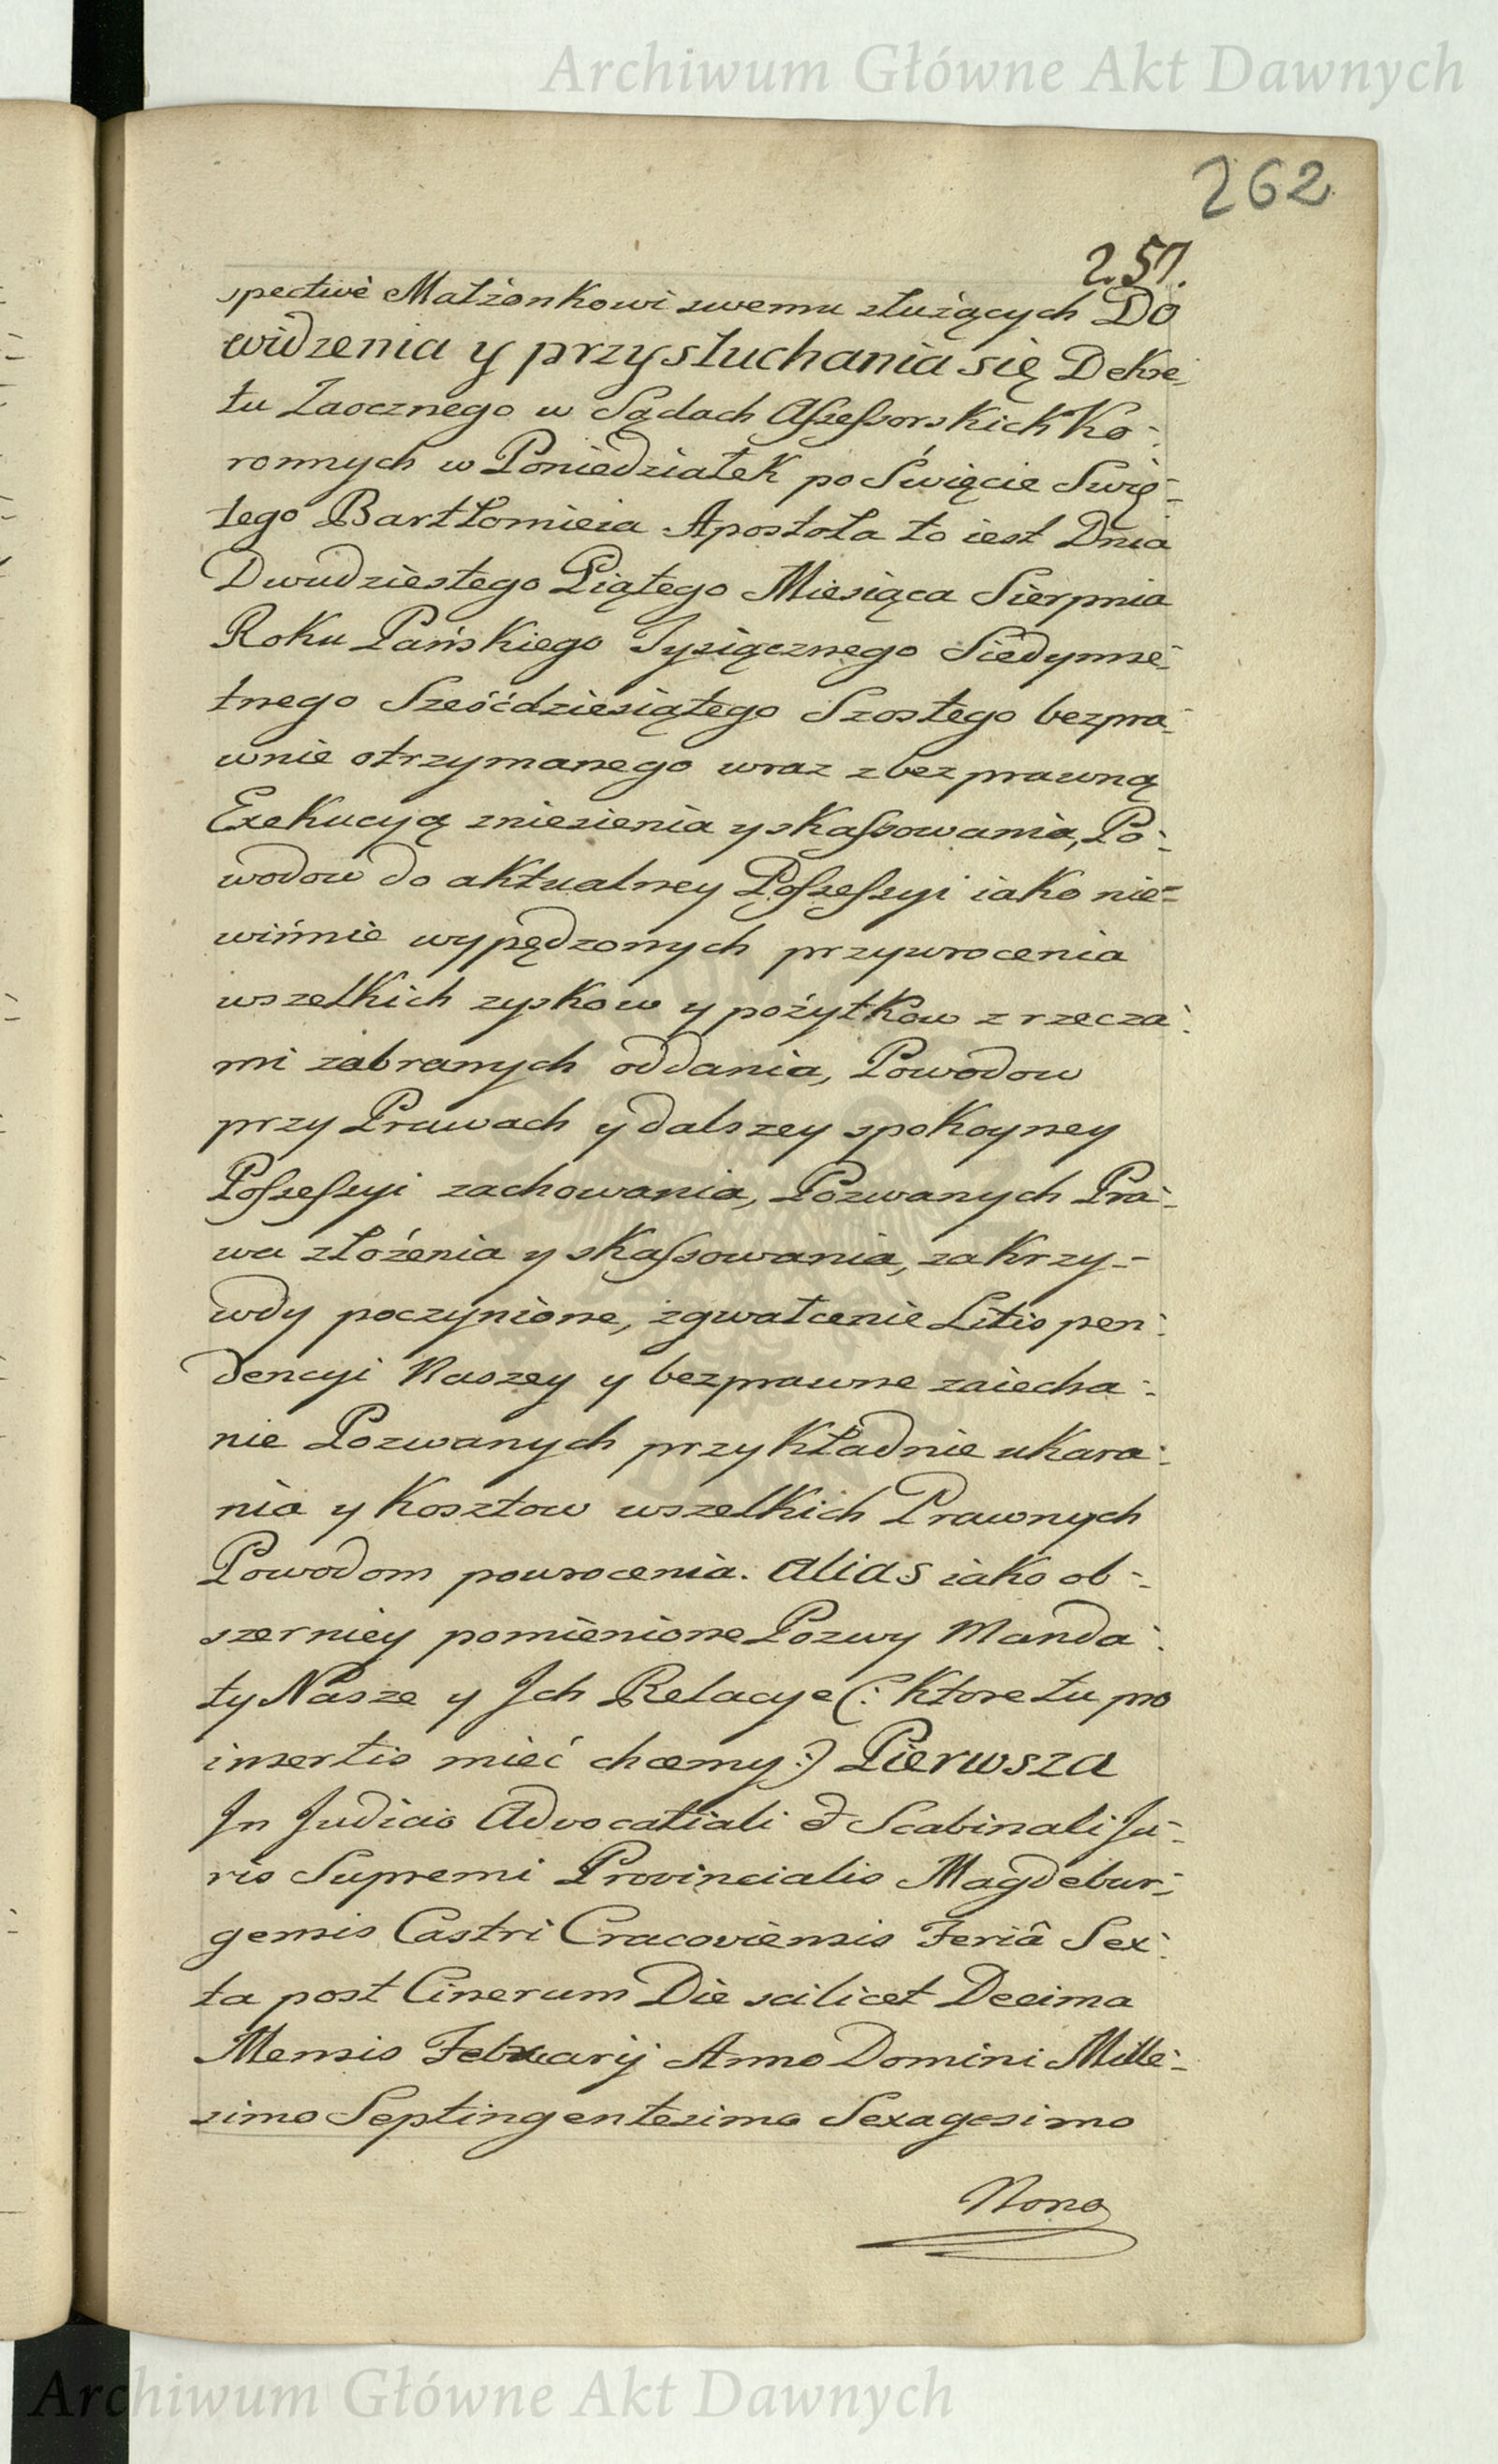 Archiwum Główne Akt Dawnych
262
257.
spective Małżonkowi swemu służących Do
widzenia y przysłuchania się Dekre
tu Zaocznego w Sądach Assessorskich Ko-
ronnych w Poniedziałek po Święcie Swię-
tego Bartłomieia Apostoła to iest Dnia
Dwudziestego Piątego Miesiąca Sierpnia
Roku Pańskiego Tysiącznego Siedymse-
tnego Sześćdziesiątego Szostego bezpra-
wnie otrzymanego wraz z bezprawną
Exekucyą zniesienia y skassowania, Po-
wodow do aktualney Possessyi iako nie-
winnie wypędzonych przywrocenia
wszelkich zyskow y pożytkow z rzecza-
mi zabranych oddania, Powodow
przy Prawach y dalszey spokoyney
Possessyi zachowania, Pozwanych Pra-
wa złożenia y skassowania, za krzy-
wdy poczynione, zgwałcenie Litis pen-
dencyi Naszey y bezprawne zaiecha-
nie Pozwanych przykładnie ukara-
nia y kosztow wszelkich Prawnych
Powodom powrocenia. alias iako ob-
szerniey pomienione Pozwy Manda-
ty Nasze y Jch Relacye (: ktore tu pro
insertis mieć chcemy :) Pierwsza
Jn Judicio Advocatiali & Scabinali Ju-
ris Supremi Provincialis Magdebur-
gensis Castri Cracoviensis Feriâ Sex-
ta post Cinerum Die scilicet Decima
Mensis Februarij Anno Domini Mille-
simo Septingentesimo Sexagesimo
Nono
Archiwum Główne Akt Dawnych